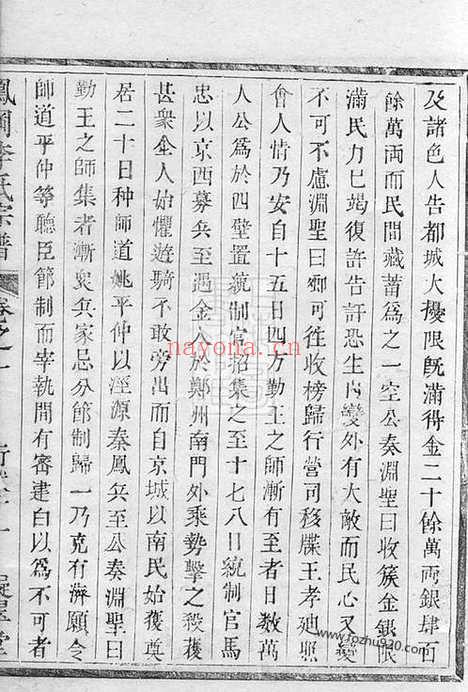 及諸色人告都城大擾限既滿得金二十餘萬兩銀肆百
餘萬両而民間藏蓄為之一空公奏淵聖曰收簇金銀限
滿民力已竭復許告訐恐生內變外有大敵而民心又變
不可不慮淵聖曰卿可徃收榜歸行營司移牒王孝廸照
會人情乃安自十五日四方勤王之師漸有至者日数萬
人公為於四壁置統制官招集之至十七八日統制官馬
忠以京西募兵至遇金人於鄭州南門外乘勢擊之殺獲
甚衆金人始懼遊騎不敢旁出而自京城以南民始獲奠
居二十日种師道姚平仲以涇源秦鳳兵至公奏淵聖曰
勤王之師集者漸衆兵家忌分節制歸一乃克有濟願令
師道平仲等聽臣節制而宰執間有密建白以為不可者
鳳岡李氏宗譜 卷之一
nayona.cn
www.fozhu920.com